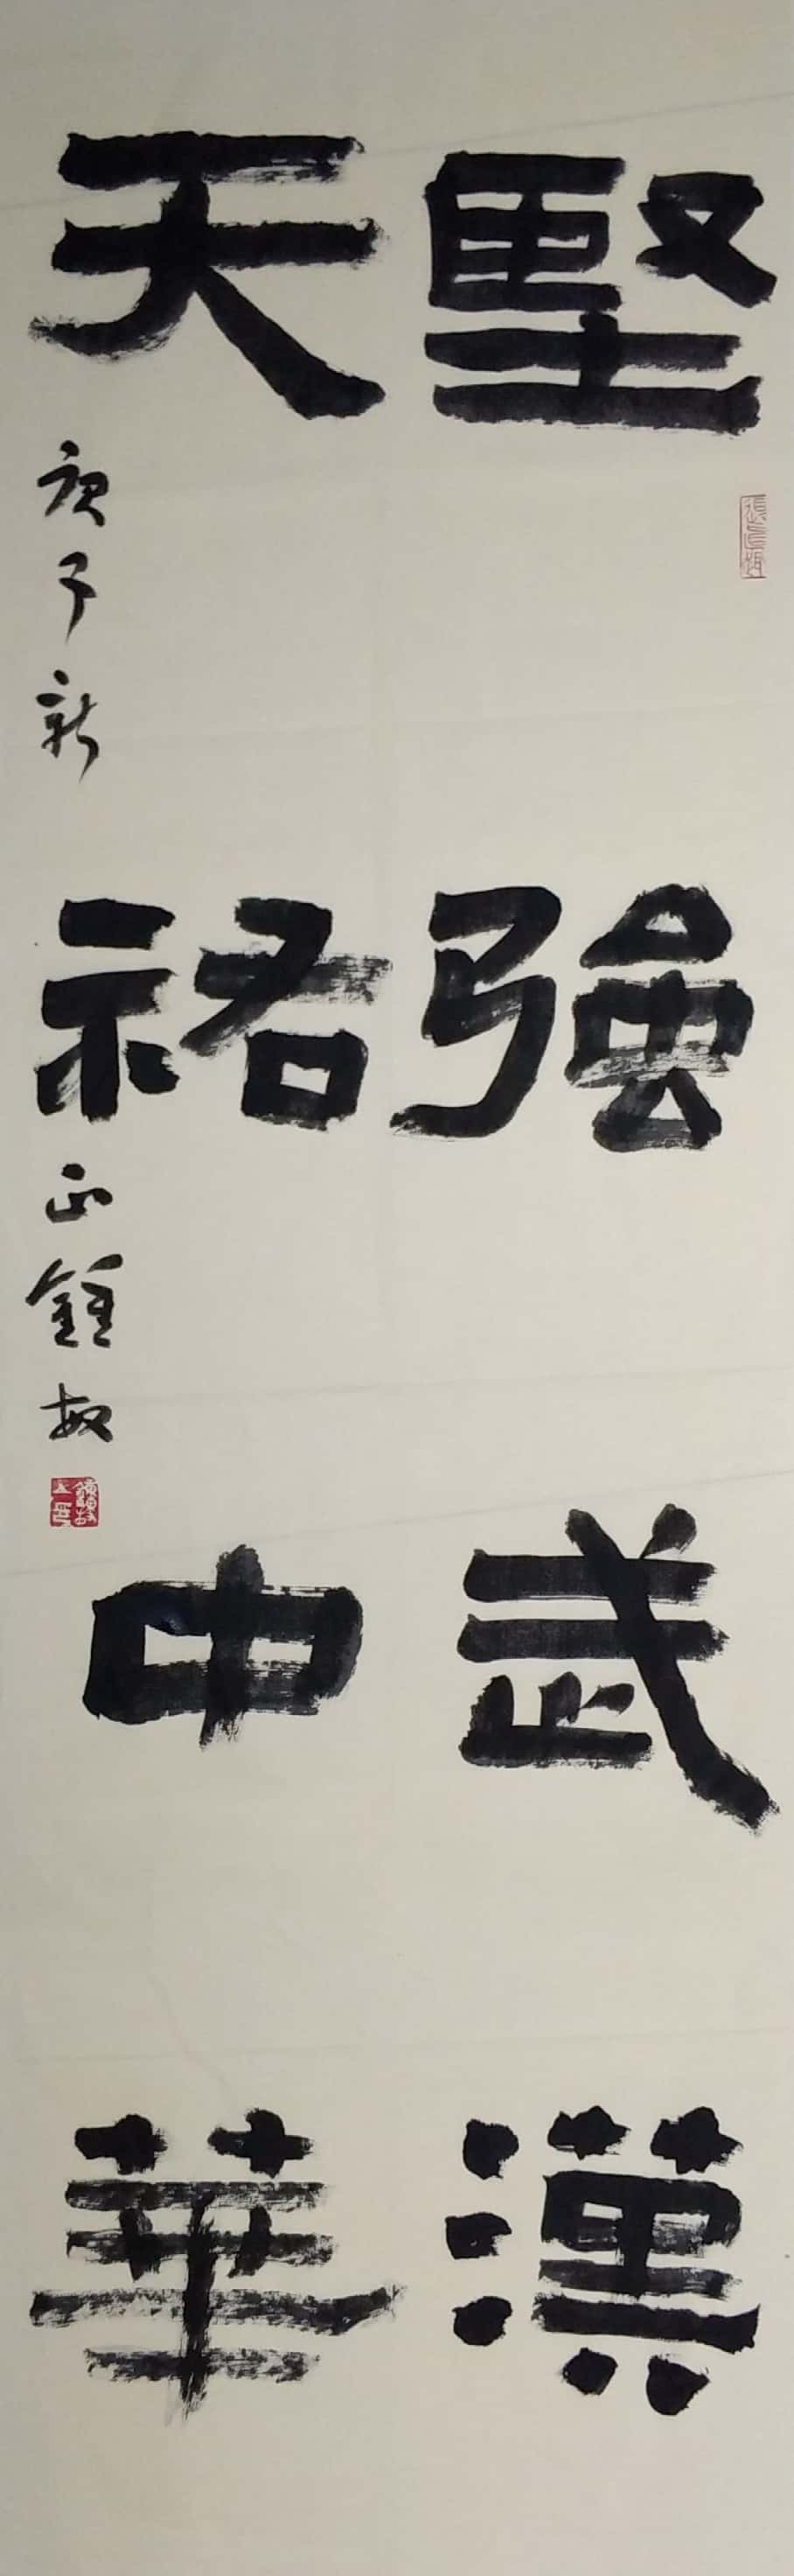 堅強武漢
天祐中華
庚子新正鍾敏